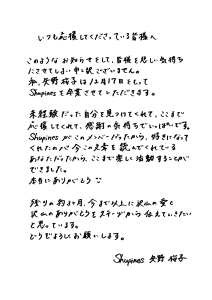 いつも応援してくださっている皆様へ
このようなお知らせをして、皆様を悲しい気持ち
にさせてしまい申し訳ございません。
私、矢野 梅子は12月17日をもして
Shapinesを卒業させていただきます。
未経験だった自分を見つけてくれて、ここまで
応援してくれて、感謝の気持ちでいっぱいです。
Shapinesがこのメンバーだったから、好きになって
くれたのが今この文を読んでくれている
あなただったから、ここまで楽しく活動することが
できました。
本当にありがとう
残りの約3ヶ月、今まで以上に沢山の愛と
沢山のありがとうをステージから伝えていきたい
と思っています。
どうぞよろしくお願いします。
Shapines 矢野 梅子